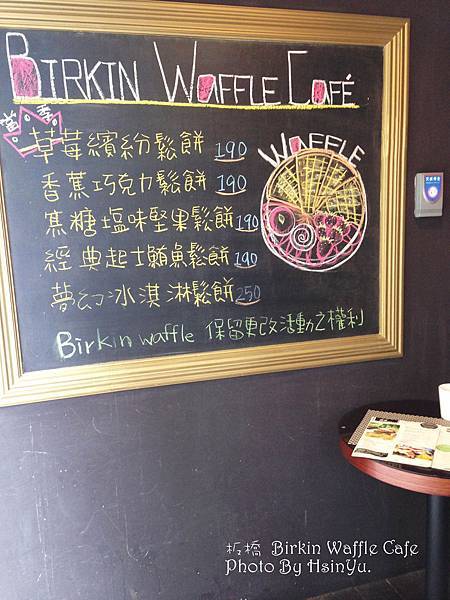 BIRKIN WAFFLE CAFÉ
當季
草莓繽紛鬆餅 190
香蕉巧克力鬆餅 190
焦糖塩味堅果鬆餅 190
經典起士鮪魚鬆餅 190
夢幻冰淇淋鬆餅 250
WAFFLE
Birkin waffle 保留更改活動之權利
板橋 Birkin Waffle Cafe
Photo By HsinYu.